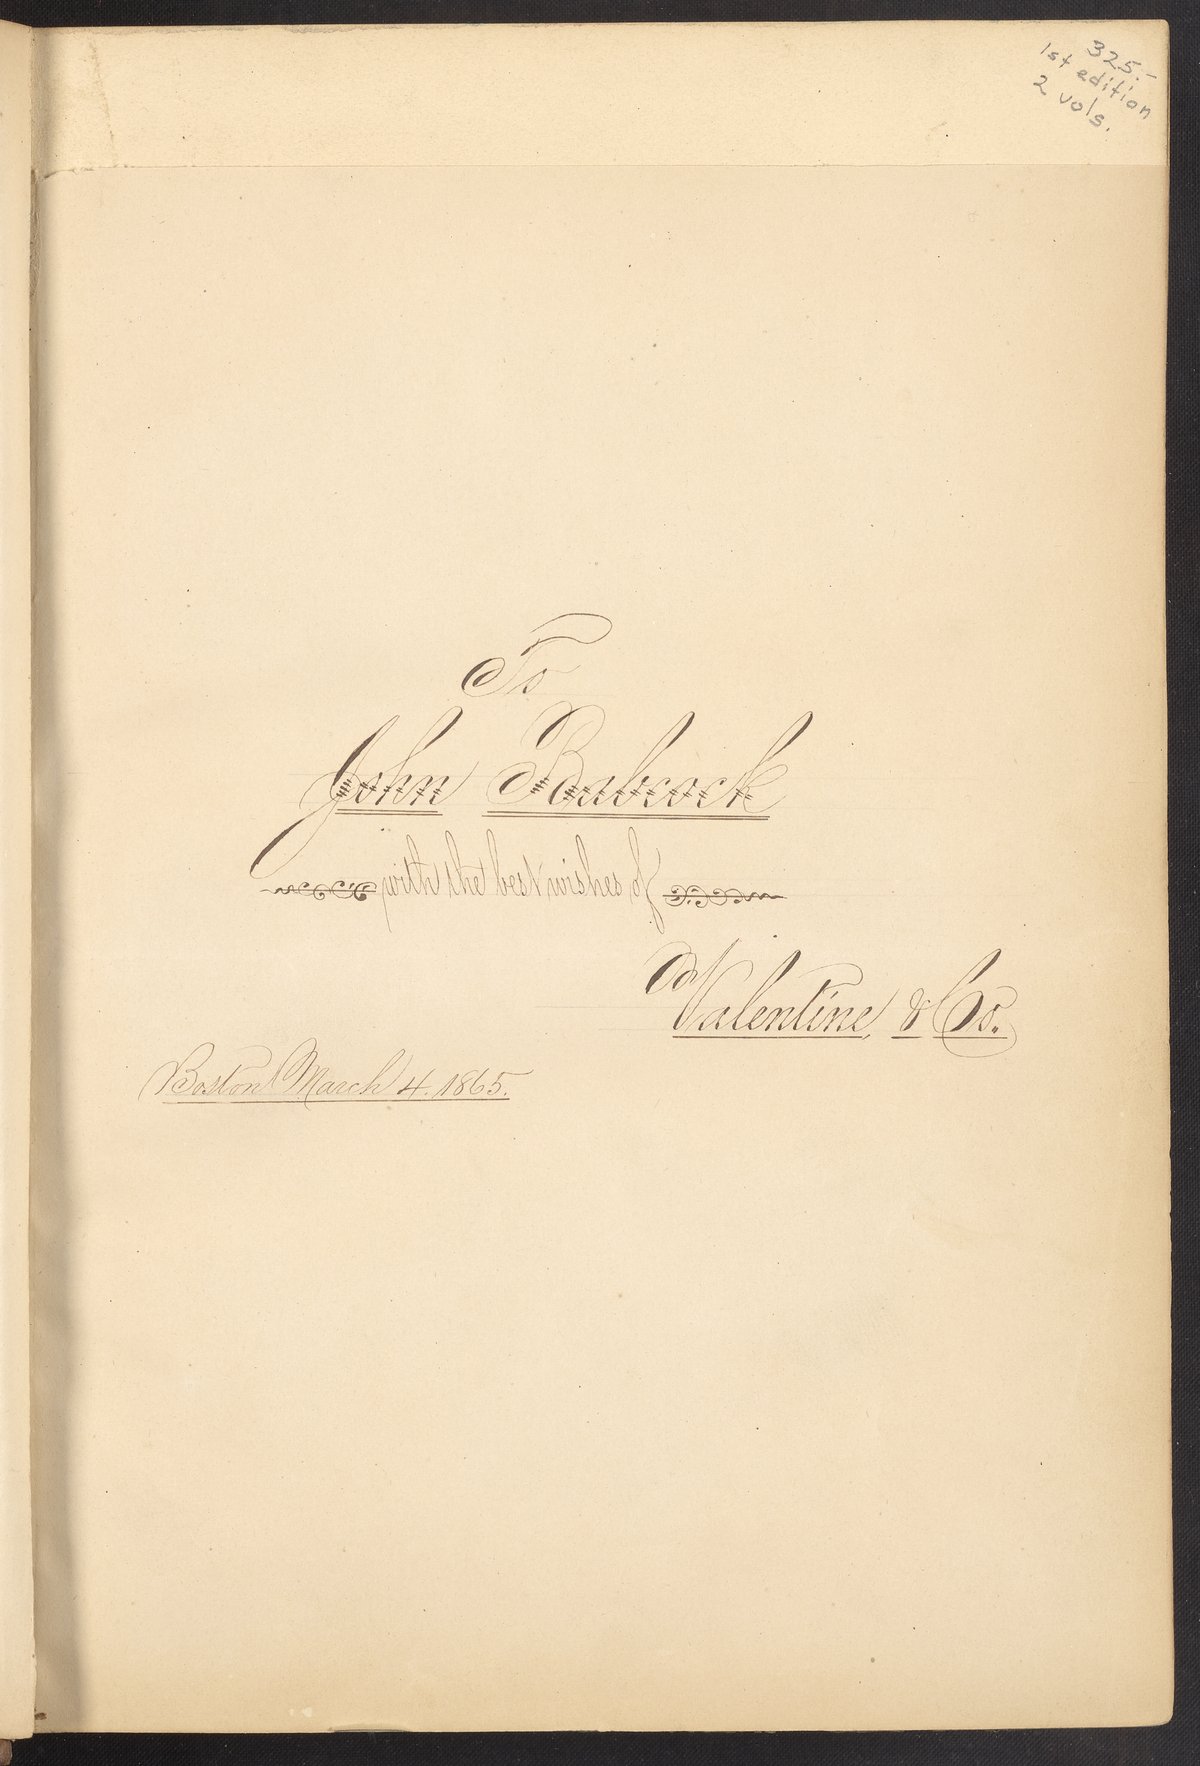 325.-
1st edition
2 vols.
To
John Babcock
with the best wishes of
Valentine, & Co.
Boston March 4. 1865.